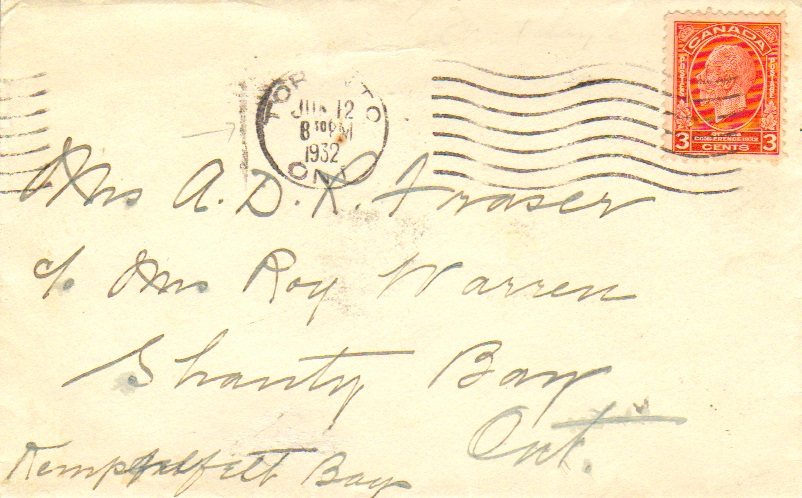 CANADA
POSTES POSTAGE
3 3
CONFERENCE 1932
CENTS
TORONTO
JUL 12
8 30 PM
1932
ONT
Mrs A. D. K. Fraser
c/o Mrs Roy Warren
Shanty Bay
Ont.
Kempenfelt Bay